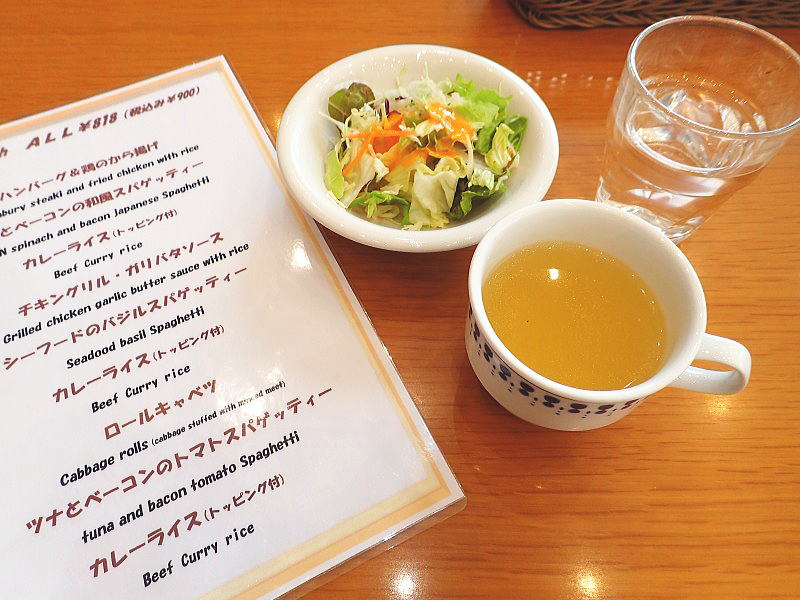 ALL ¥818 (税込み¥900)
ハンバーグ&鶏のから揚げ
steaki and fried chicken with rice
とベーコンの和風スパゲッティー
spinach and bacon Japanese Spaghetti
カレーライス(トッピング付)
Beef Curry rice
チキングリル・ガリバタソース
Grilled chicken garlic butter sauce with rice
シーフードのバジルスパゲッティー
Seadood basil Spaghetti
カレーライス(トッピング付)
Beef Curry rice
ロールキャベツ
Cabbage rolls (cabbage stuffed with minced meet)
ツナとベーコンのトマトスパゲッティー
tuna and bacon tomato Spaghetti
カレーライス(トッピング付)
Beef Curry rice